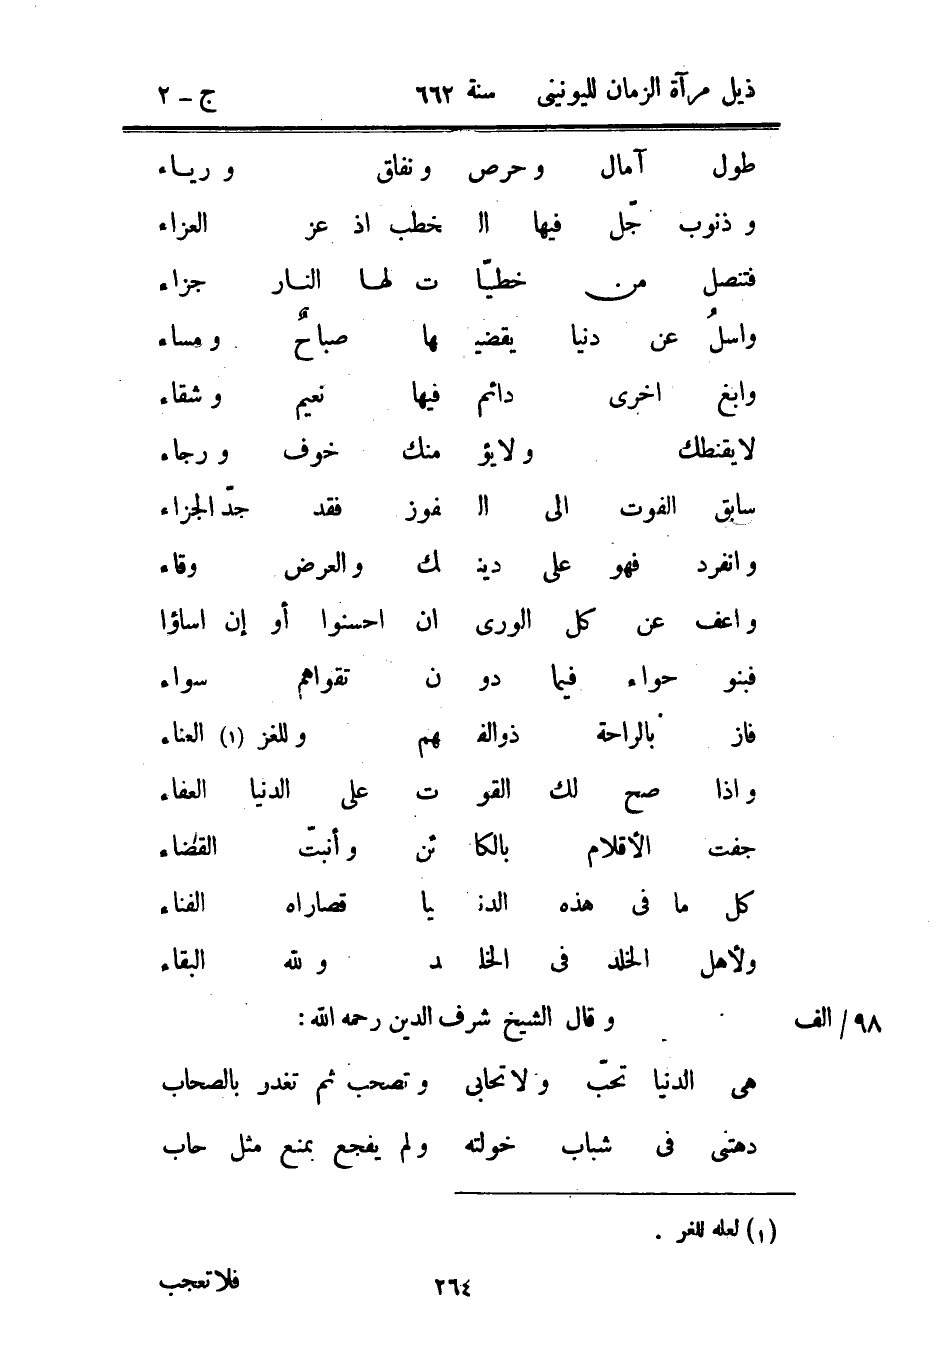 ذيل مرآة الزمان لليونينى سنة ٦٦٢ ج – ٢
طول آمال و حرص و نفاق و رياء
و ذنوب جّل فيها الـ خطب اذ عز العزاء
فتنصل من خطيّا ت لها النار جزاء
واسلُ عن دنيا يقضيـ ها صباحٌ و مساء
وابغ اخرى دائم فيها نعيم و شقاء
لايقنطك و لايؤ منك خوف و رجاء
سابق الفوت الى الـ فوز فقد جدّ الجزاء
و انفرد فهو على دينـ ـك و العرض وقاء
و اعف عن كل الورى ان احسنوا أو إن اساؤا
فبنو حواء فيما دو ن تقواهم سواء
فاز بالراحة ذوالفـ ـهم و للغز (١) العناء
و اذا صح لك القو ت على الدنيا العفاء
جفت الأقلام بالكا ئن و أنبتّ القضاء
كل ما فى هذه الدنـ ـيا قصاراه الفناء
ولأهل الخلد فى الخلـ ـد و لله البقاء
٩٨/ الف و قال الشيخ شرف الدين رحمه الله :
هى الدنيا تحبّ و لاتحابى و تصحب ثم تغدر بالصحاب
دهتنى فى شباب خولته و لم يفجع بمنع مثل حاب
(١) لعله للغر .
٢٦٤ فلا تعجب